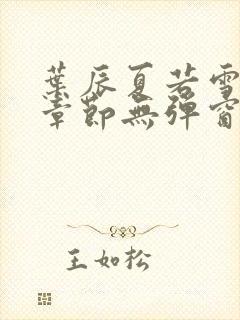 葉辰夏若雪
章節無彈窗
王如松